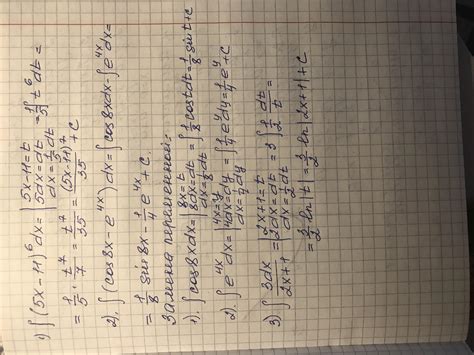 1) ∫(5x-11)⁶dx = | 5x-11=t 5dx=dt dx=1/5 dt | = 1/5 ∫ t⁶ dt =
= 1/5 · t⁷/7 = t⁷/35 = (5x-11)⁷/35 + C
2) ∫(cos8x-e⁴ˣ)dx = ∫cos8xdx - ∫e⁴ˣdx =
= 1/8 sin8x - 1/4 e⁴ˣ + C.
Замена переменной:
1). ∫cos8xdx = | 8x=t 8dx=dt dx=1/8 dt | = ∫ 1/8 cost dt = 1/8 sint + C
2). ∫e⁴ˣdx = | 4x=y 4dx=dy dx=1/4 dy | = ∫ 1/4 eʸdy = 1/4 eʸ + C
3) ∫ 3dx/2x+1 = | 2x+1=t 2dx=dt dx=1/2 dt | = 3 ∫ 1/2 dt/t =
= 3/2 ln|t| = 3/2 ln|2x+1| + C